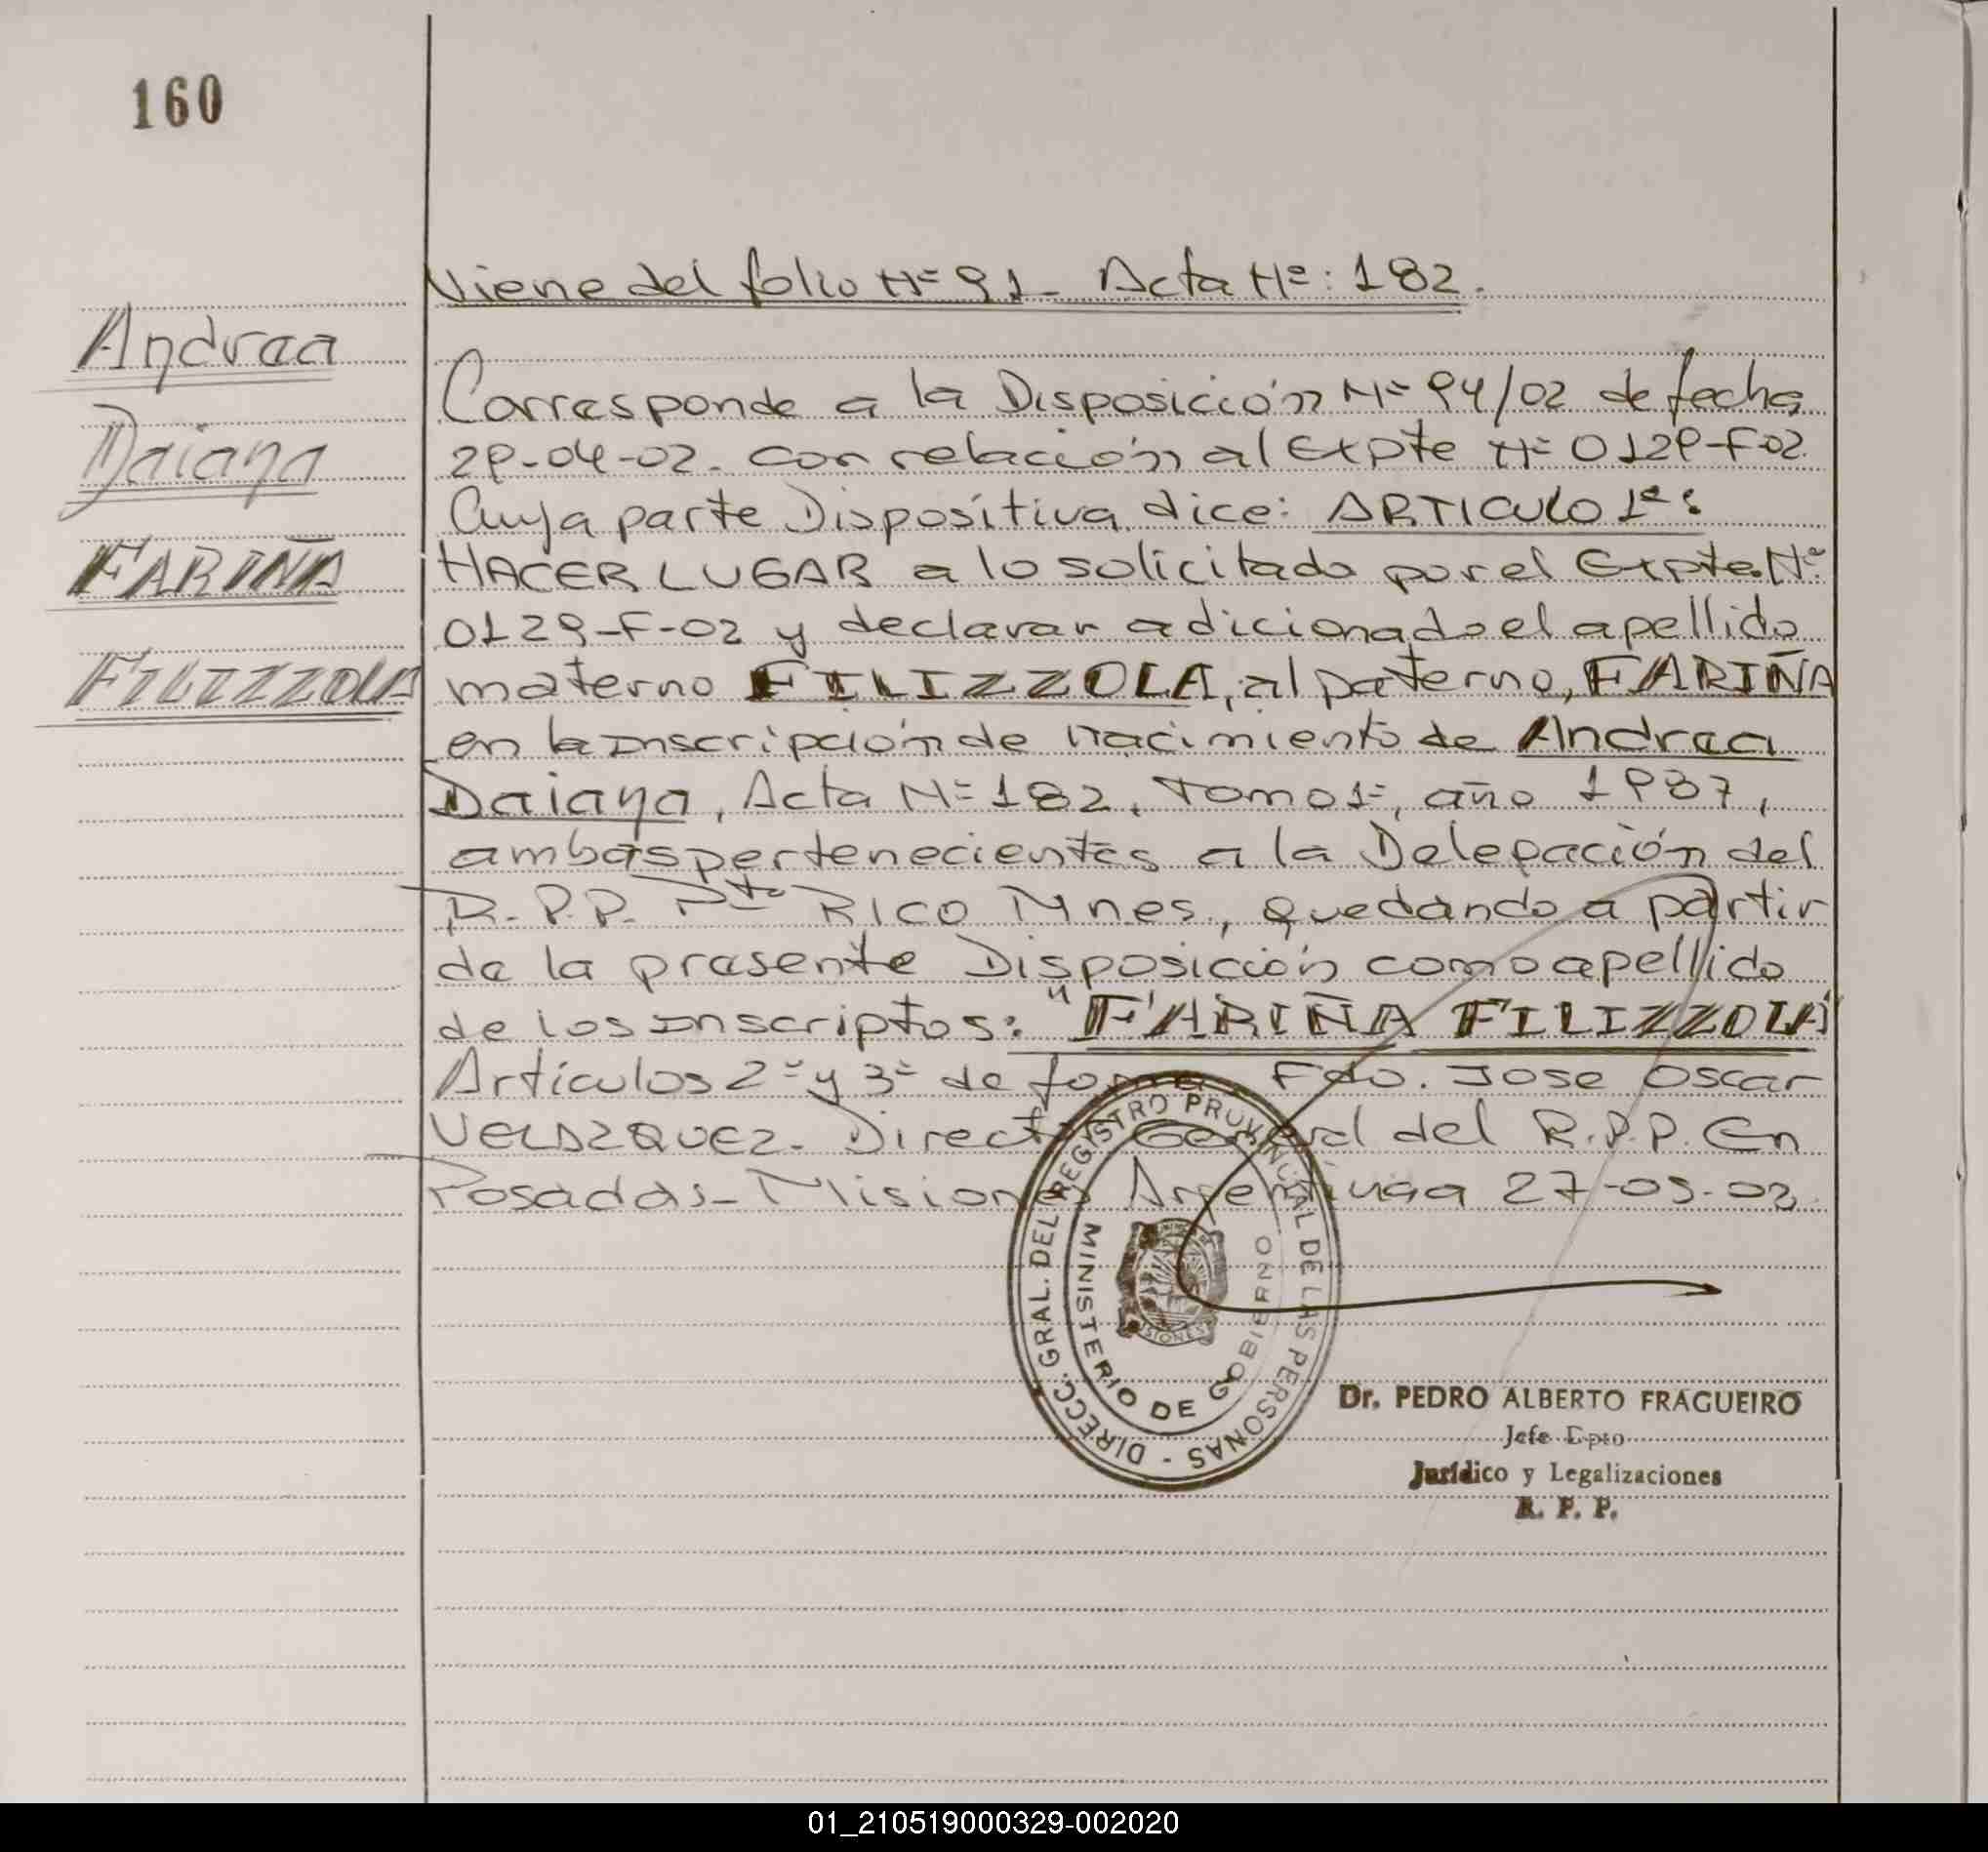 160
Viene del folio Nº 91- Acta Nº: 182.
Andrea
Daiana
FARIÑA
FILIZZOLA
Corresponde a la Disposición Nº 94/02 de fecha
29-04-02. con relación al Expte Nº 0129-F-02.
Cuya parte Dispositiva dice: ARTICULO 1º:
HACER LUGAR a lo solicitado por el Expte. Nº
0129-F-02 y declarar adicionado el apellido
materno FILIZZOLA, al paterno, FARIÑA
en la inscripción de nacimiento de Andrea
Daiana, Acta Nº 182, Tomo 1º, año 1987,
ambas pertenecientes a la Delegación del
R.P.P. Pto Rico Mnes, quedando a partir
de la presente Disposición como apellido
de los inscriptos: "FARIÑA FILIZZOLA"
Artículos 2º y 3º de forma. Fdo. Jose Oscar
VELAZQUEZ. Director General del R.P.P. En
Posadas- Misiones Argentina 27-05-02.
DIRECC. GRAL. DEL REGISTRO PROVINCIAL DE LAS PERSONAS -
MINISTERIO DE GOBIERNO
MISIONES
Dr. PEDRO ALBERTO FRAGUEIRO
Jefe Dpto
Jurídico y Legalizaciones
R. P. P.
01_210519000329-002020